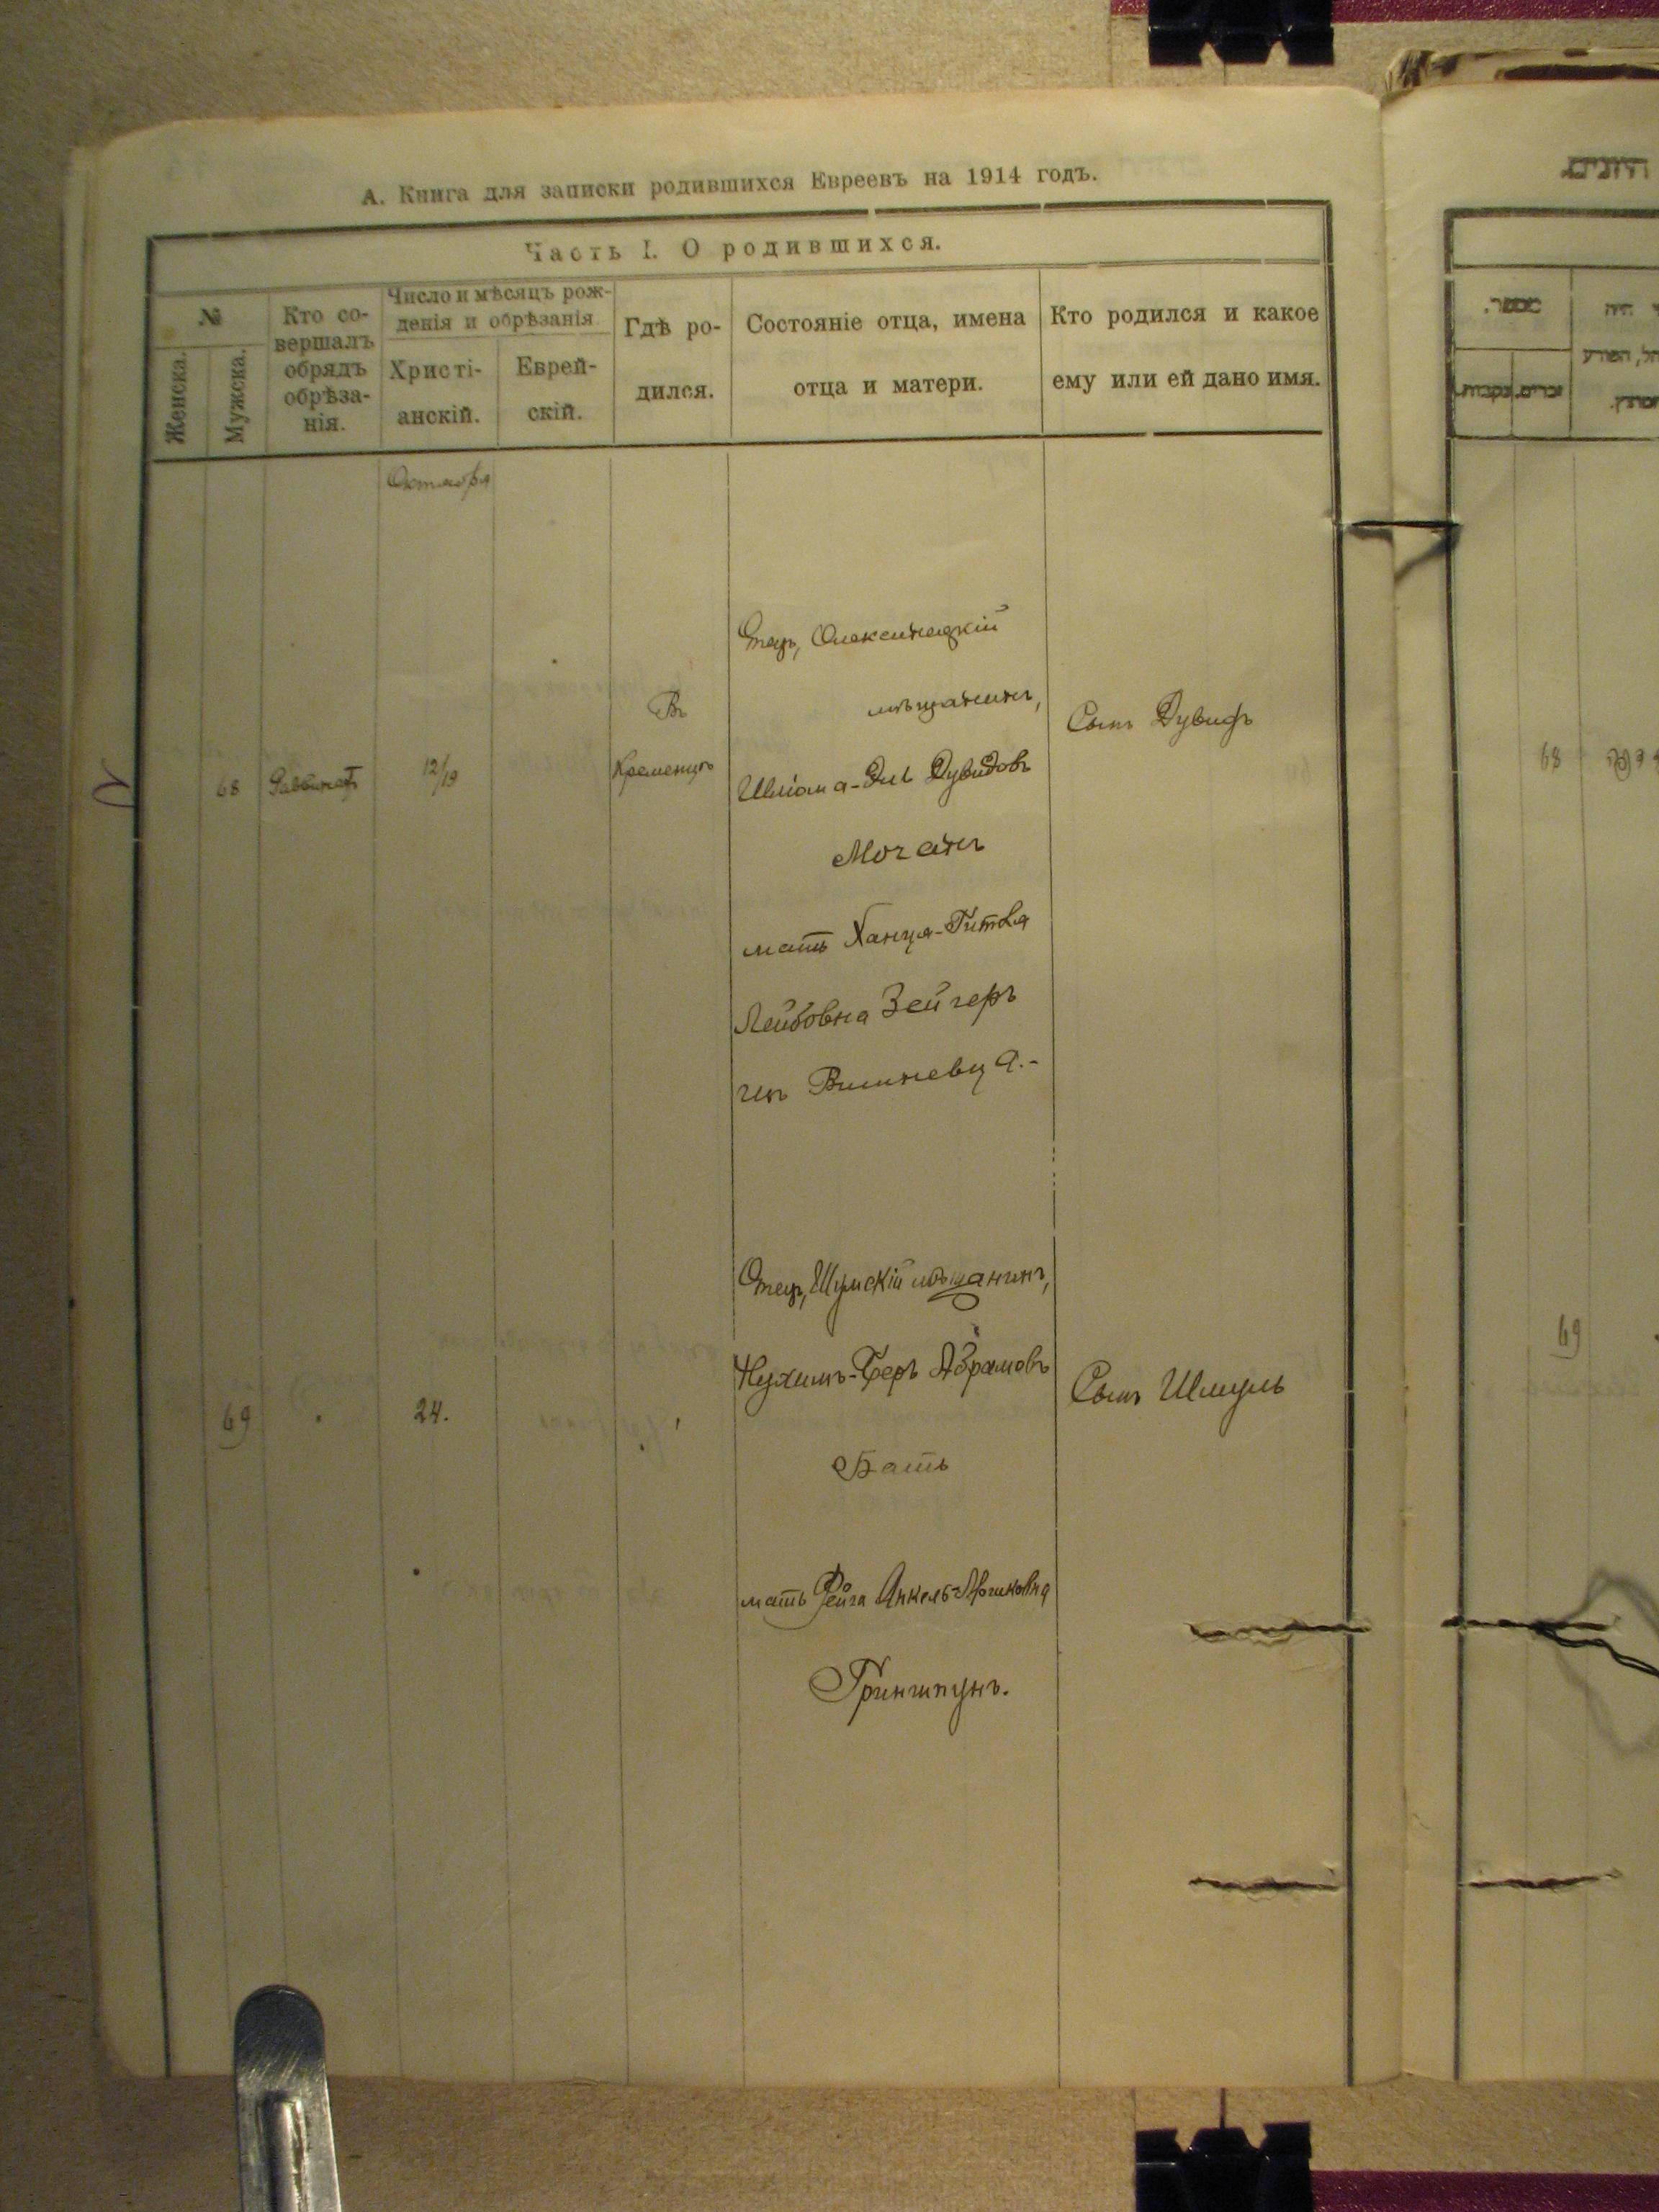 А. Книга для записки родившихся Евреевъ на 1914 годъ.
Часть I. О родившихся.
№
Женска.
Мужска.
Кто со-
вершалъ
обрядъ
обрѣза-
нія.
Число и мѣсяцъ рож-
денія и обрѣзанія.
Христі-
анскій.
Еврей-
скій.
Гдѣ ро-
дился.
Состояніе отца, имена
отца и матери.
Кто родился и какое
ему или ей дано имя.
Октября
68
12/19
Въ
Кременцѣ
Отецъ, Олексинецкій
мѣщанинъ,
Шліома-Эль Дувидовъ
Мочанъ
мать Ханця-Гитля
Лейбовна Зейгеръ
изъ Вишневца.-
Сынъ Дувидъ
69
24.
Отецъ, Шумскій мѣщанинъ,
Нухимъ-Беръ Абрамовъ
Бать
мать Фейга
Гриншпунъ.
Сынъ Шмуль
מספר.
זכרים.
נקבות.
68
69